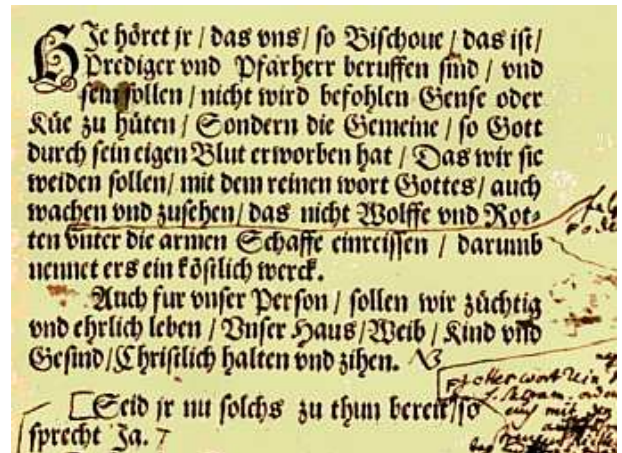 HIe höret jr / das vns / so Bischoue / das ist /
Prediger vnd Pfarherr beruffen sind / vnd
sein sollen / nicht wird befohlen Gense oder
Küe zu hüten / Sondern die Gemeine / so Gott
durch sein eigen Blut erworben hat / Das wir sie
weiden sollen / mit dem reinen wort Gottes / auch
wachen vnd zusehen / das nicht Wolffe vnd Rot-
ten vnter die armen Schaffe einreissen / darumb
nennet ers ein köstlich werck.
Auch fur vnser Person / sollen wir züchtig
vnd ehrlich leben / Vnser Haus / Weib / Kind vnd
Gesind / Christlich halten vnd zihen.
Seid jr nu solchs zu thun bereit / so
sprecht Ja.